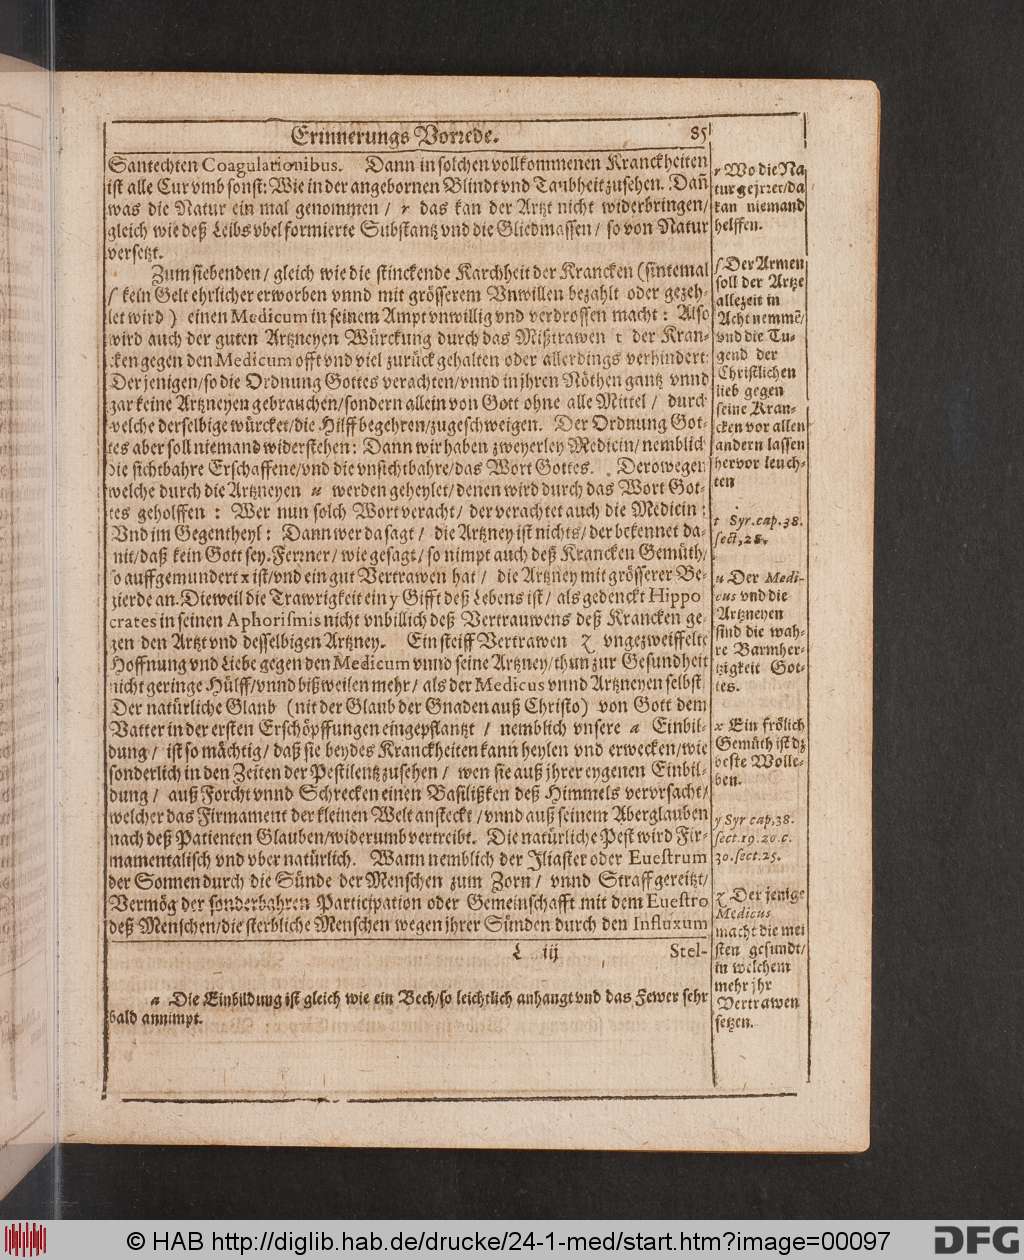 Erinnerungs Vorrede. 85
Santechten Coagulationibus. Dann in solchen vollkommenen Kranckheiten
ist alle Cur vmb sonst: Wie in der angebornen Blindt vnd Taubheit zusehen. Dañ
was die Natur ein mal genommen / r das kan der Artzt nicht widerbringen /
gleich wie deß Leibs vbel formierte Substantz vnd die Gliedmassen / so von Natur
versetzt.
Zum siebenden / gleich wie die stinckende Karchheit der Krancken (sintemal
ſ kein Gelt ehrlicher erworben vnnd mit grösserem Vnwillen bezahlt oder gezeh-
let wird ) einen Medicum in seinem Ampt vnwillig vnd verdrossen macht: Also
wird auch der guten Artzneyen Würckung durch das Mißtrawen t der Kran-
cken gegen den Medicum offt vnd viel zurück gehalten oder allerdings verhindert:
Der jenigen / so die Ordnung Gottes verachten / vnnd in jhren Nöthen gantz vnnd
gar keine Artzneyen gebrauchen / sondern allein von Gott ohne alle Mittel / durch
welche derselbige würcket / die Hilff begehren / zugeschweigen. Der Ordnung Got-
tes aber soll niemand widerstehen: Dann wir haben zweyerley Medicin / nemblich
die sichtbahre Erschaffene / vnd die vnsichtbahre / das Wort Gottes. Derowegen
welche durch die Artzneyen u werden geheylet / denen wird durch das Wort Got-
tes geholffen : Wer nun solch Wort veracht / der verachtet auch die Medicin :
Vnd im Gegentheyl : Dann wer da sagt / die Artzney ist nichts / der bekennet da-
mit / daß kein Gott sey. Ferrner / wie gesagt / so nimpt auch deß Krancken Gemüth /
so auffgemundert x ist / vnd ein gut Vertrawen hat / die Artzney mit grösserer Be-
zierde an. Dieweil die Trawrigkeit ein y Gifft deß Lebens ist / als gedenckt Hippo
crates in seinen Aphorismis nicht vnbillich deß Vertrauwens deß Krancken ge-
gen den Artzt vnd desselbigen Artzney. Ein steiff Vertrawen z vngezweiffelte
Hoffnung vnd Liebe gegen den Medicum vnnd seine Artzney / thun zur Gesundheit
nicht geringe Hülff / vnnd bißweilen mehr / als der Medicus vnnd Artzneyen selbst
Der natürliche Glaub (nit der Glaub der Gnaden auß Christo) von Gott dem
Vatter in der ersten Erschöpffungen eingepflantzt / nemblich vnsere a Einbil-
dung / ist so mächtig / daß sie beydes Kranckheiten kann heylen vnd erwecken / wie
sonderlich in den Zeiten der Pestilentz zusehen / wen sie auß jhrer eygenen Einbil-
dung / auß Forcht vnnd Schrecken einen Basilißken deß Himmels vervrsacht /
welcher das Firmament der kleinen Welt ansteckt / vnnd auß seinem Aberglauben
nach deß Patienten Glauben / widerumb vertreibt. Die natürliche Pest wird Fir-
mamentalisch vnd vber natürlich. Wann nemblich der Iliaster oder Euestrum
der Sonnen durch die Sünde der Menschen zum Zorn / vnnd Straff gereitzt /
Vermög der sonderbahren Participation oder Gemeinschafft mit dem Euestro
deß Menschen / die sterbliche Menschen wegen jhrer Sünden durch den Influxum
L iij Stel-
a Die Einbildung ist gleich wie ein Bech / so leichtlich anhangt vnd das Fewer sehr
bald annimpt.
r Wo die Na
tur gejrret / da
kan niemand
helffen.
ſ Der Armen
soll der Artze
allezeit in
Acht nemmē /
vnd die Tu-
gend der
Christlichen
lieb gegen
seine Kran-
cken vor allen
andern lassen
hervor leuch-
ten
t Syr. cap. 38.
sect, 28.
u Der Medi-
cus vnd die
Artzneyen
sind die wah-
re Barmher-
tzigkeit Got-
tes.
x Ein frölich
Gemüth ist dz
beste Wolle-
ben.
y Syr cap, 38.
sect. 19. 20. c.
30. sect. 25.
z Der jenige
Medicus
macht die mei
sten gesundt /
in welchem
mehr jhr
Vertrawen
setzen.
© HAB http://diglib.hab.de/drucke/24-1-med/start.htm?image=00097
DFG